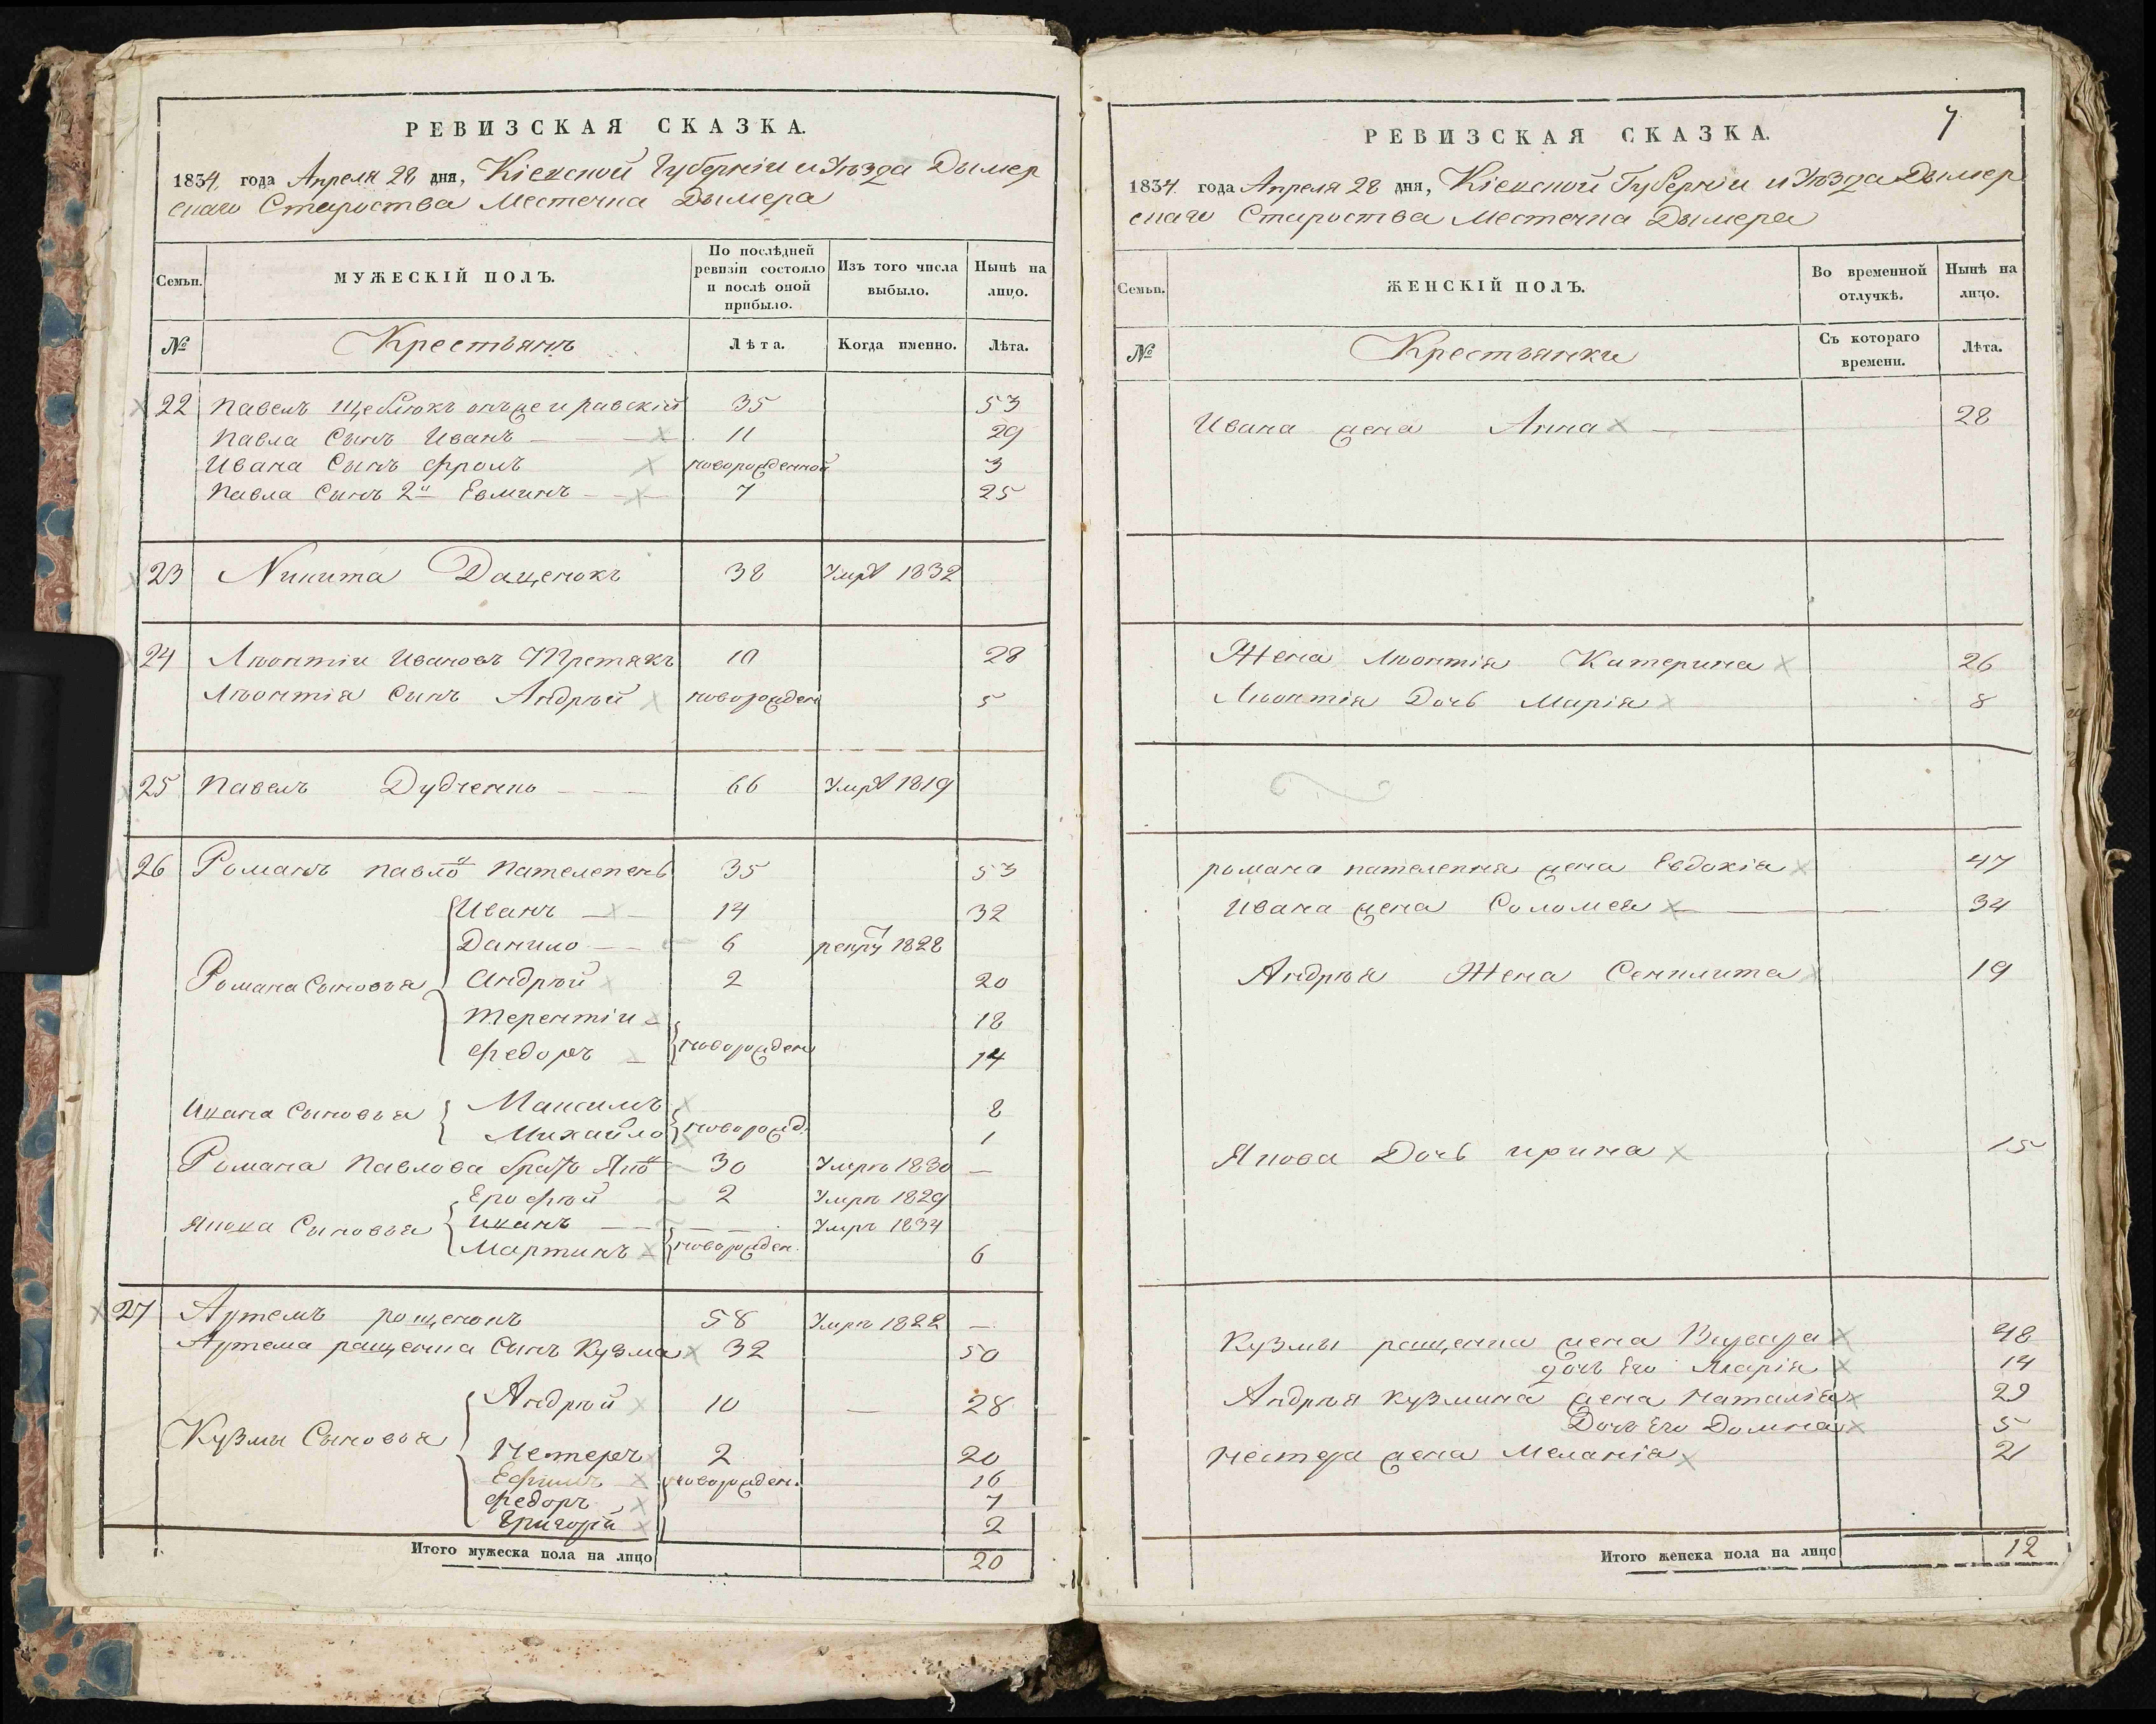 РЕВИЗСКАЯ СКАЗКА.
1834 года Апреля 28 дня, Кіевской Губерніи и Уѣзда Дымер
скаго Староства Местечка Дымера
Семьи.
МУЖЕСКІЙ ПОЛЪ.
По послѣдней ревизіи состояло и послѣ оной прибыло.
Изъ того числа выбыло.
Нынѣ на лицо.
№
Крестьянъ
Лѣта.
Когда именно.
Лѣта.
22 Павелъ Щеблюкъ 35 53
Павла Сынъ Иванъ 11 29
Ивана Сынъ Фролъ новорожденной 3
Павла Сынъ 2й 7 25
23 Никита Даценокъ 38 Умръ 1832
24 Лѣонтіи Ивановъ Третякъ 10 28
Лѣонтія Сынъ Андрѣй новорожден 5
25 Павелъ Дудченко 66 Умръ 1819
26 Романъ Павло Пателепень 35 53
Романа Сыновья
Иванъ 14 32
Данило 6 рекру 1828
Андрѣй 2 20
Терентіи 18
Федоръ новорожден 14
Ивана Сыновья
Максимъ 8
Михайло новорожд. 1
Романа Павлова братъ Яко 30 Умръ 1830 —
Якова Сыновья
Ерофѣй 2 Умръ 1829
Иванъ — Умръ 1834
Мартинъ новорожден. 6
27 Артемъ рощенокъ 58 Умръ 1822 —
Артема ращенка Сынъ Кузма 32 50
Кузмы Сыновья
Андрѣй 10 — 28
Нестеръ 2 20
Ефимъ новорожден. 16
Федоръ 7
Григорій 2
Итого мужеска пола на лицо 20
7
РЕВИЗСКАЯ СКАЗКА.
1834 года Апреля 28 дня, Кіевской Губерніи и Уѣзда Дымер
скаго Староства Местечка Дымера
Семьи.
ЖЕНСКІЙ ПОЛЪ.
Во временной отлучкѣ.
Нынѣ на лицо.
№
Крестьянки
Съ котораго времени.
Лѣта.
Ивана жена Анна 28
Жена Лѣонтія Катерина 26
Лѣонтія Дочь Марія 8
романа пателепня жена Евдокія 47
Ивана жена Соломея 34
Андрѣя Жена Сенклита 19
Якова Дочь ирина 15
Кузмы ращенка жена Варвара 48
дочь Его Марія 14
Андрѣя Кузмина жена Наталія 29
Дочь Его Домна 5
Нестера жена Меланія 21
Итого женска пола на лицо 12